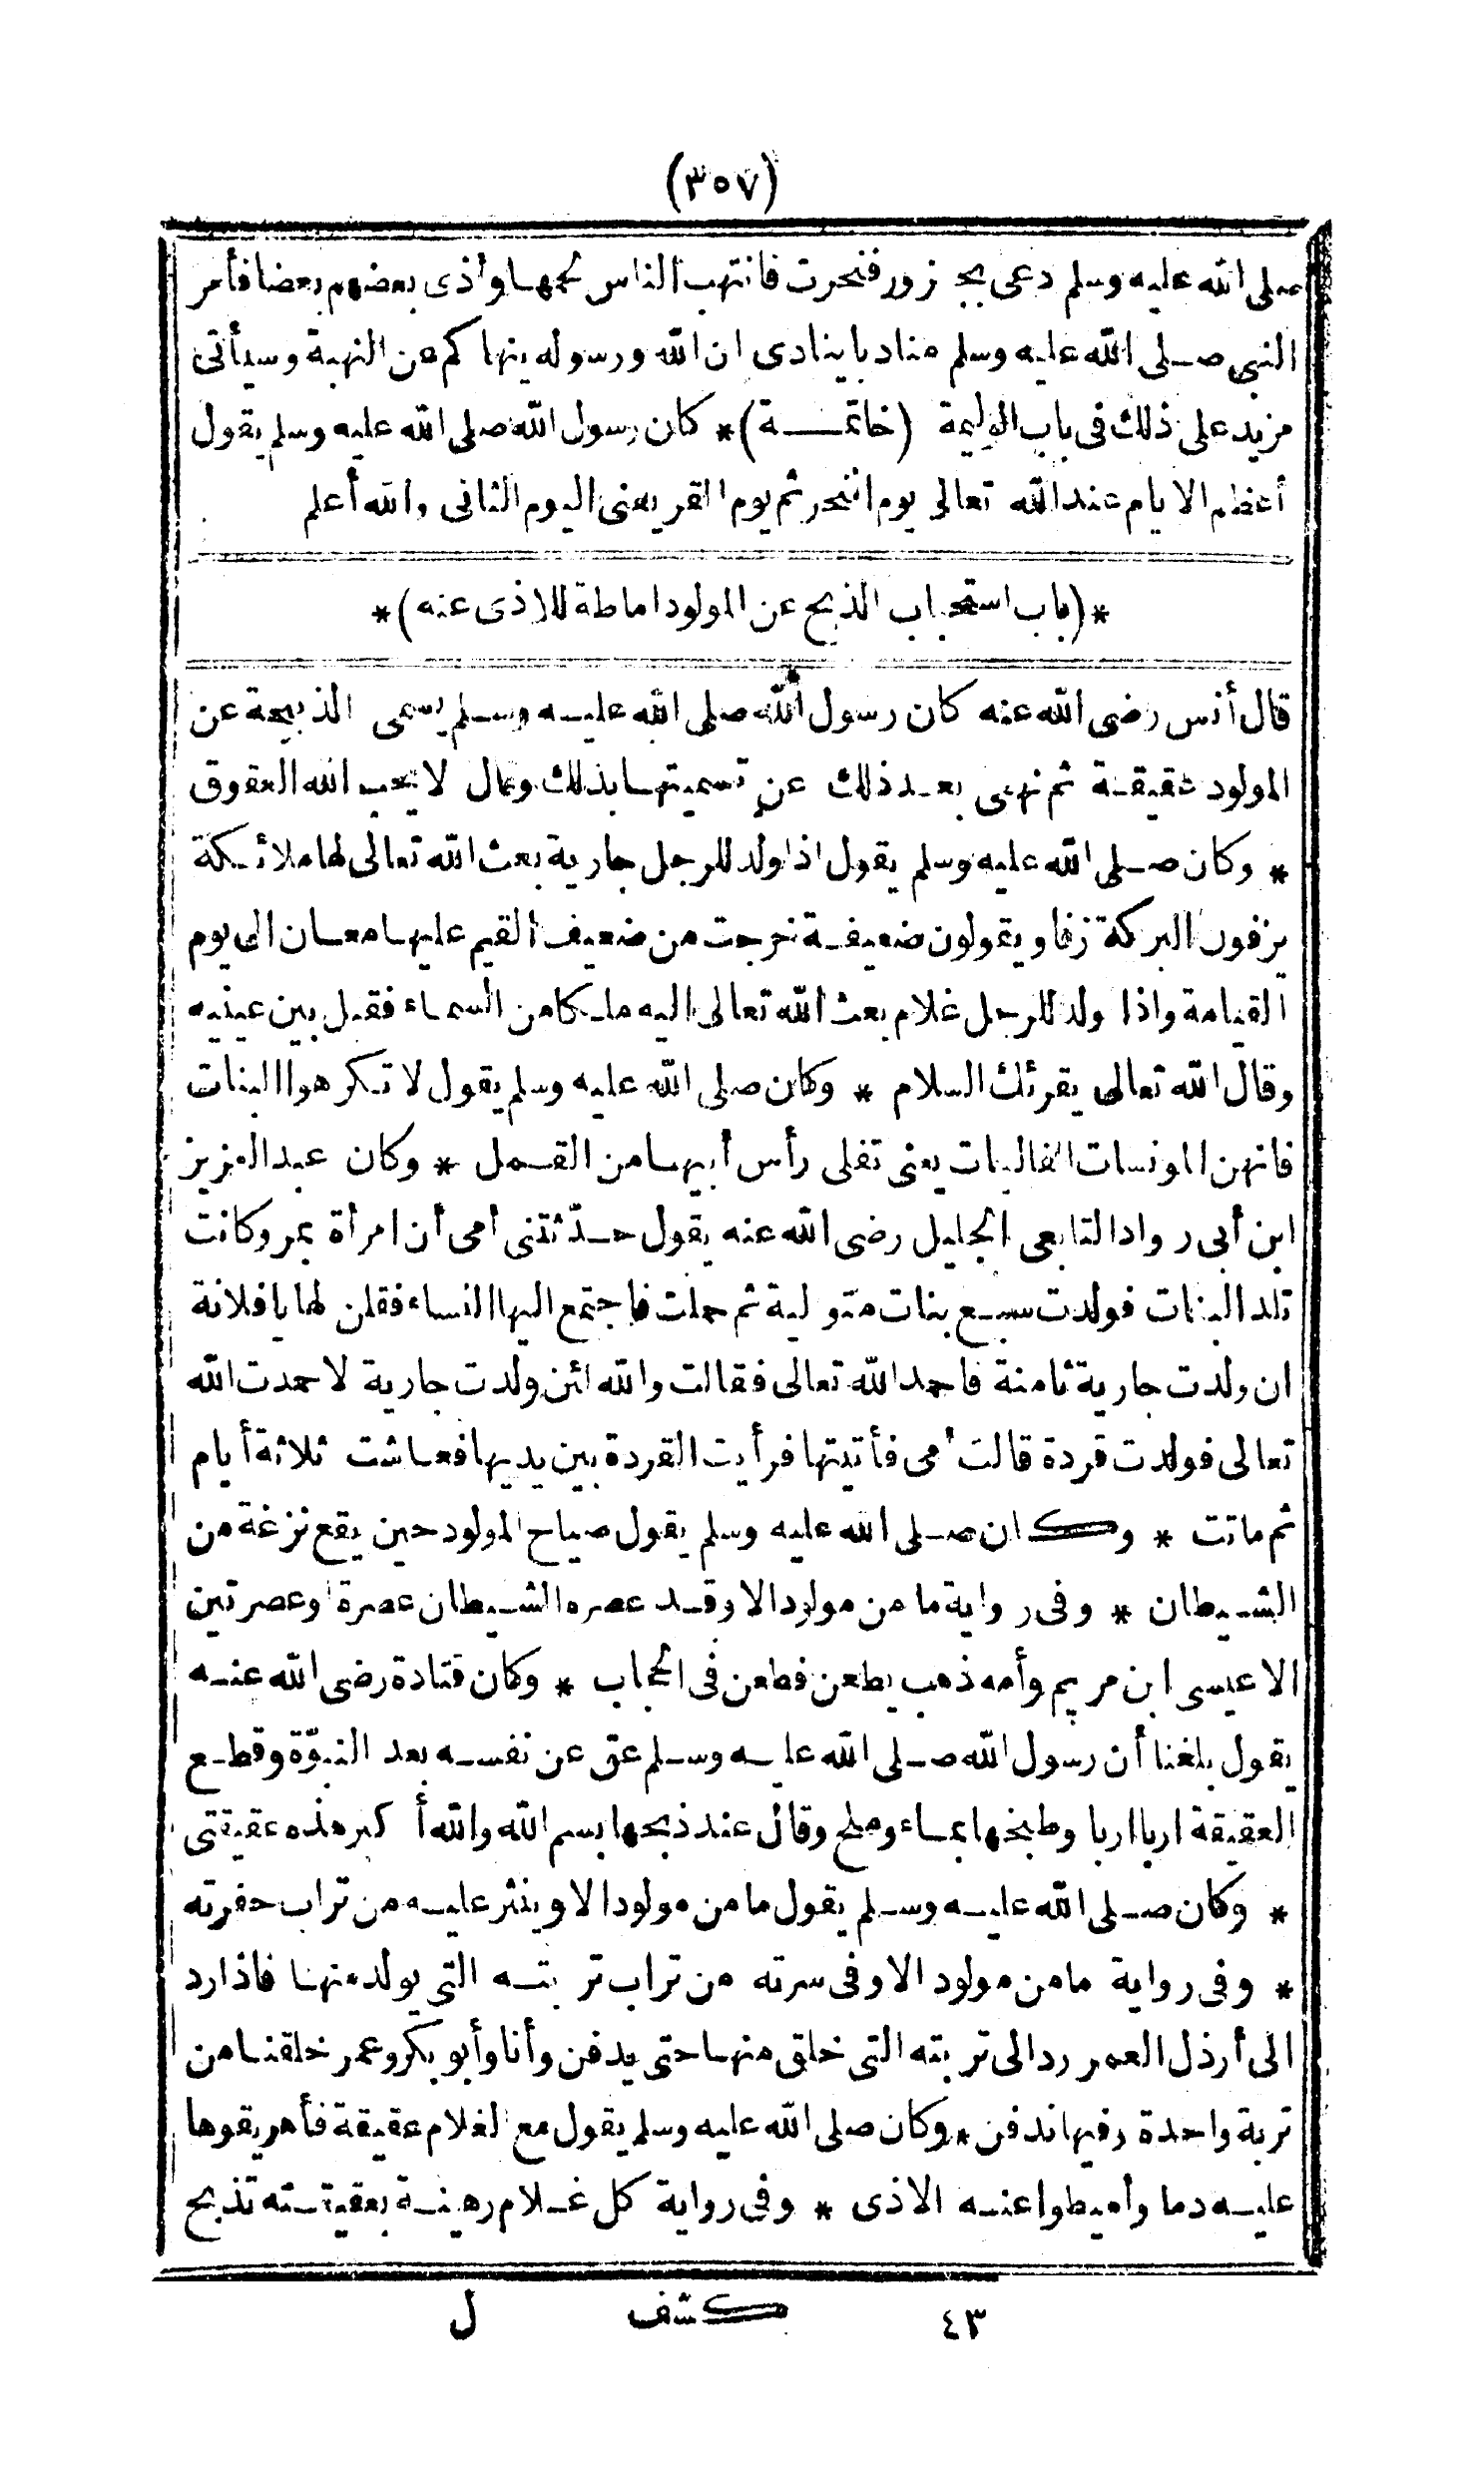 (٣٥٧)
صلى الله عليه وسلم دعى بجزور فنحرت فانتهب الناس لحمها وأذى بعضهم بعضا فأمر
النبي صلى الله عليه وسلم مناديا ينادى ان الله ورسوله ينها كم عن النهبة وسيأتى
مزيد على ذلك فى باب الوليمة (خاتمة)* كان رسول الله صلى الله عليه وسلم يقول
أعظم الايام عند الله تعالى يوم النحر ثم يوم القر يعنى اليوم الثانى والله أعلم
*(باب استحباب الذبح عن المولود اماطة للاذى عنه)*
قال أنس رضى الله عنه كان رسول الله صلى الله عليه وسلم يسمى الذبيحة عن
المولود عقيقة ثم نهى بعد ذلك عن تسميتها بذلك وقال لا يحب الله العقوق
* وكان صلى الله عليه وسلم يقول اذا ولد للرجل جارية بعث الله تعالى لها ملائكة
يزفون البركة زفا ويقولون ضعيفة خرجت من ضعيف القيم عليها معان الى يوم
القيامة واذا ولد للرجل غلام بعث الله تعالى اليه ملكا من السماء فقبل بين عينيه
وقال الله تعالى يقرئك السلام * وكان صلى الله عليه وسلم يقول لا تكرهوا البنات
فانهن المونسات الفاليات يعنى تفلى رأس أبيها من القمل * وكان عبد العزيز
ابن أبى رواد التابعى الجليل رضى الله عنه يقول حدّثتنى أمى أن امرأة بمرو كانت
تلد البنات فولدت سبع بنات متولية ثم حملت فاجتمع اليها النساء فقلن لها يا فلانة
ان ولدت جارية ثامنة فاحمد الله تعالى فقالت والله لئن ولدت جارية لا حمدت الله
تعالى فولدت قردة قالت أمى فأتيتها فرأيت القردة بين يديها فعاشت ثلاثة أيام
ثم ماتت * وكان صلى الله عليه وسلم يقول صياح المولود حين يقع نزغة من
الشيطان * وفى رواية ما من مولود الا وقد عصره الشيطان عصرة أو عصرتين
الا عيسى ابن مريم وأمه ذهب يطعن فطعن فى الحجاب * وكان قتادة رضى الله عنه
يقول بلغنا أن رسول الله صلى الله عليه وسلم عق عن نفسه بعد النبوّة وقطع
العقيقة اربا اربا وطبخها بماء وملح وقال عند ذبحها بسم الله والله أكبر هذه عقيقتى
* وكان صلى الله عليه وسلم يقول ما من مولود الا وينثر عليه من تراب حفرته
* وفى رواية ما من مولود الا وفى سرته من تراب تربته التى يولد منها فاذا رد
الى أرذل العمر رد الى تربته التى خلق منها حتى يدفن وأنا وأبو بكر وعمر خلقنا من
تربة واحدة وفيها ندفن * وكان صلى الله عليه وسلم يقول مع الغلام عقيقة فأهريقوها
عليه دما وأميطوا عنه الاذى * وفى رواية كل غلام رهينة بعقيقته تذبح
٤٣ كشف ل